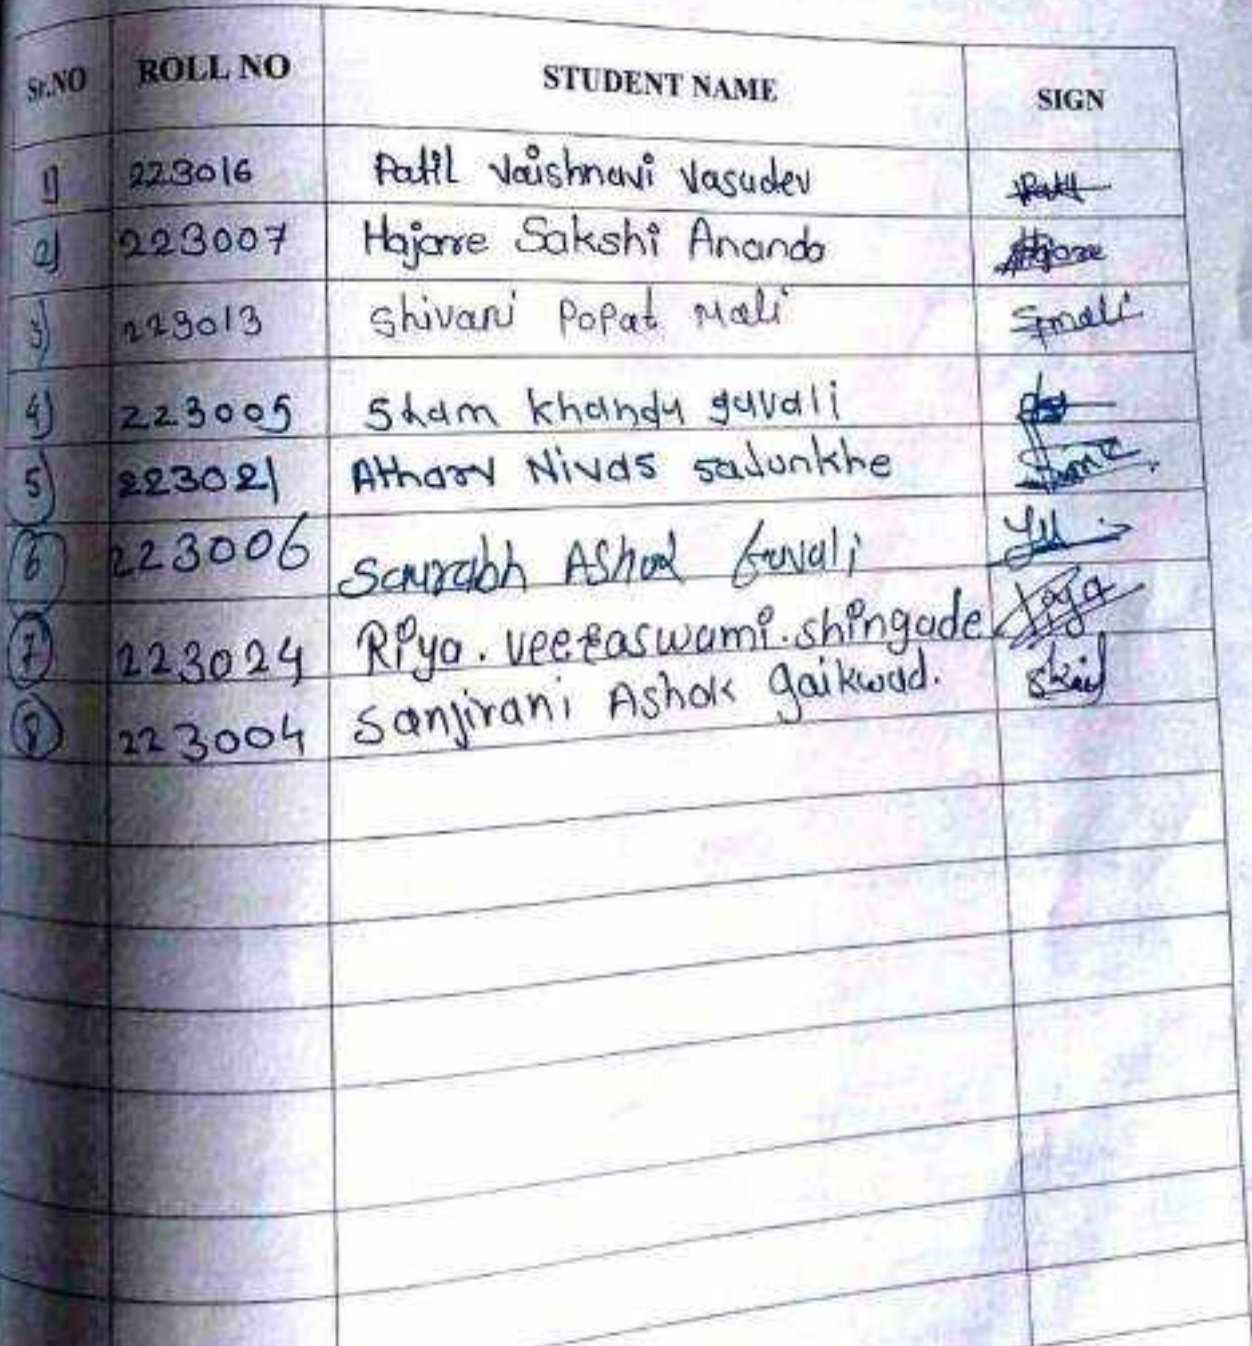 Sr.NO ROLL NO STUDENT NAME SIGN
1) 223016 Patil Vaishnavi Vasudev Patil
2) 223007 Hajare Sakshi Ananda Hajare
3) 223013 Shivani Popat Mali Smali
4) 223005 Sham khandu gavali
5) 223021 Atharv Nivas salunkhe
6 223006 Saurabh AShok Gavali
7 223024 Riya. veeraswami. shingade Riya
8 223004 Sanjivani Ashok gaikwad.